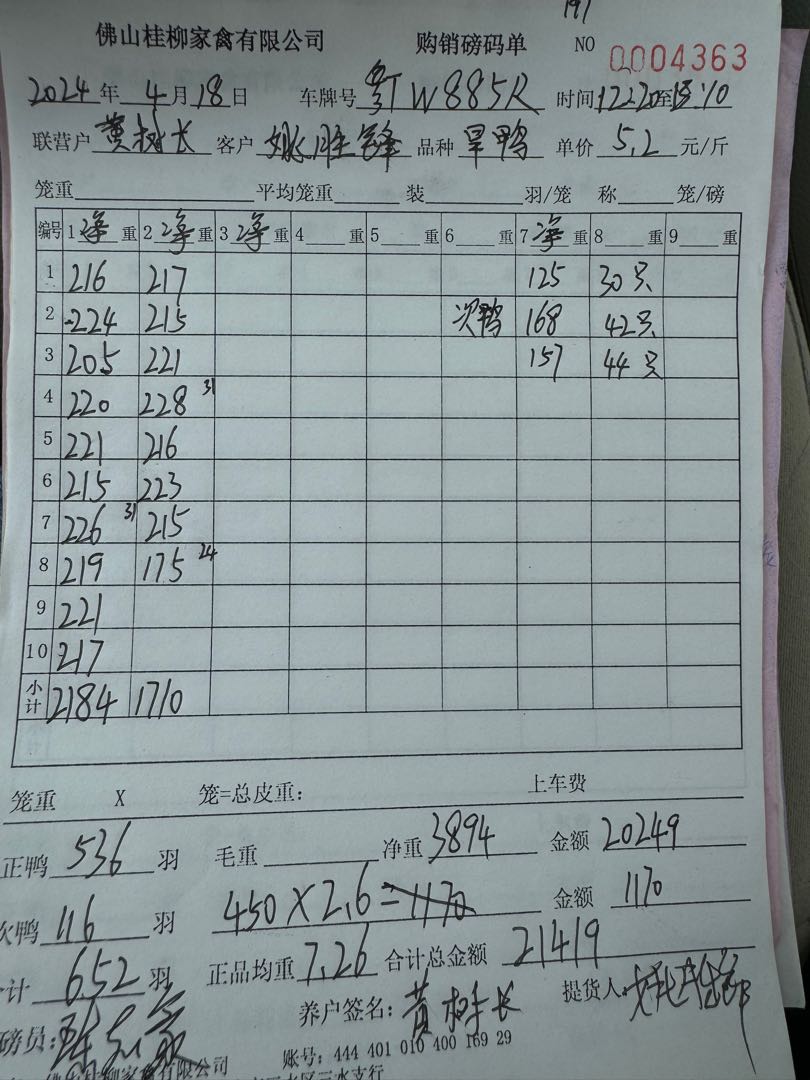 191
佛山桂柳家禽有限公司 购销磅码单 NO 0004363
2024年 4月18日 车牌号 粤TW885R 时间12:20至13:10
联营户 黄树长 客户 姚胜锋 品种 旱鸭 单价 5.2 元/斤
笼重 平均笼重 装 羽/笼 称 笼/磅
编号 1净重 2净重 3净重 4 重 5 重 6 重 7净重 8 重 9 重
1 216 217 125 30只
2 224 215 次鸭 168 42只
3 205 221 157 44只
4 220 228 31
5 221 216
6 215 223
7 226 31 215
8 219 175 24
9 221
10 217
小计 2184 1710
笼重 X 笼=总皮重: 上车费
正鸭 536 羽 毛重 净重 3894 金额 20249
次鸭 116 羽 450×2.6=1170 金额 1170
计 652 羽 正品均重 7.26 合计总金额 21419
磅员: 养户签名: 黄树长 提货人:
佛山桂柳家禽有限公司 账号: 444 401 010 400 169 29
三水支行